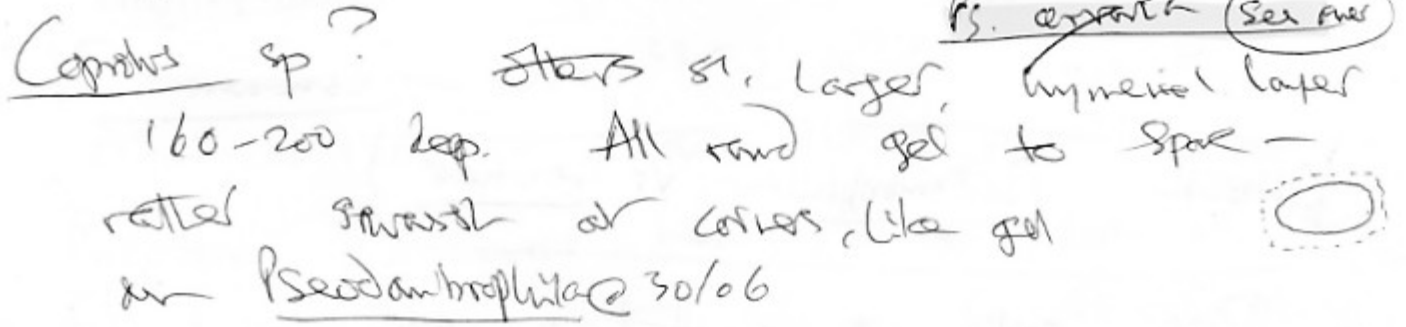 (See over)
Coprotus sp? Others sl. larger, hymenial layer
160-200 deep. All round gel to spore —
rather squarish at corners, like gel
on Pseudombrophila @ 30/06